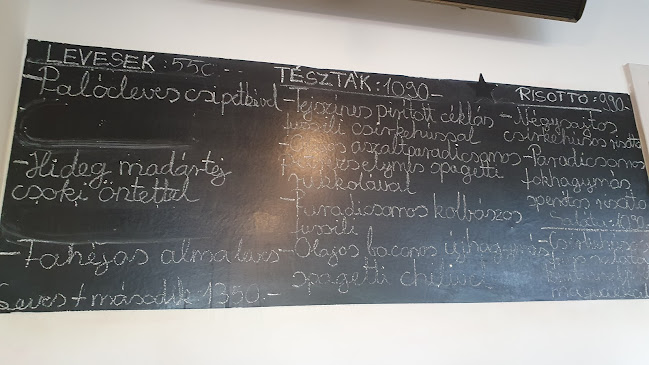 LEVESEK: 550
- Palócleves csipetkével
- Hideg madártej
csoki öntettel
- Fahéjas almaleves
Leves + második 1350.-
TÉSZTÁK: 1090-
- Tejszínes pirított céklás
fusilli csirkehússal
aszaltparadicsomos
spagetti
rukkolával
- Paradicsomos kolbászos
fusilli
- Olajos baconos újhagymás
spagetti chilivel
RISOTTO: 990-
- Négysajtos
csirkehúsos risotto
- Paradicsomos
fokhagymás
spenótos risotto
Saláta: 1090